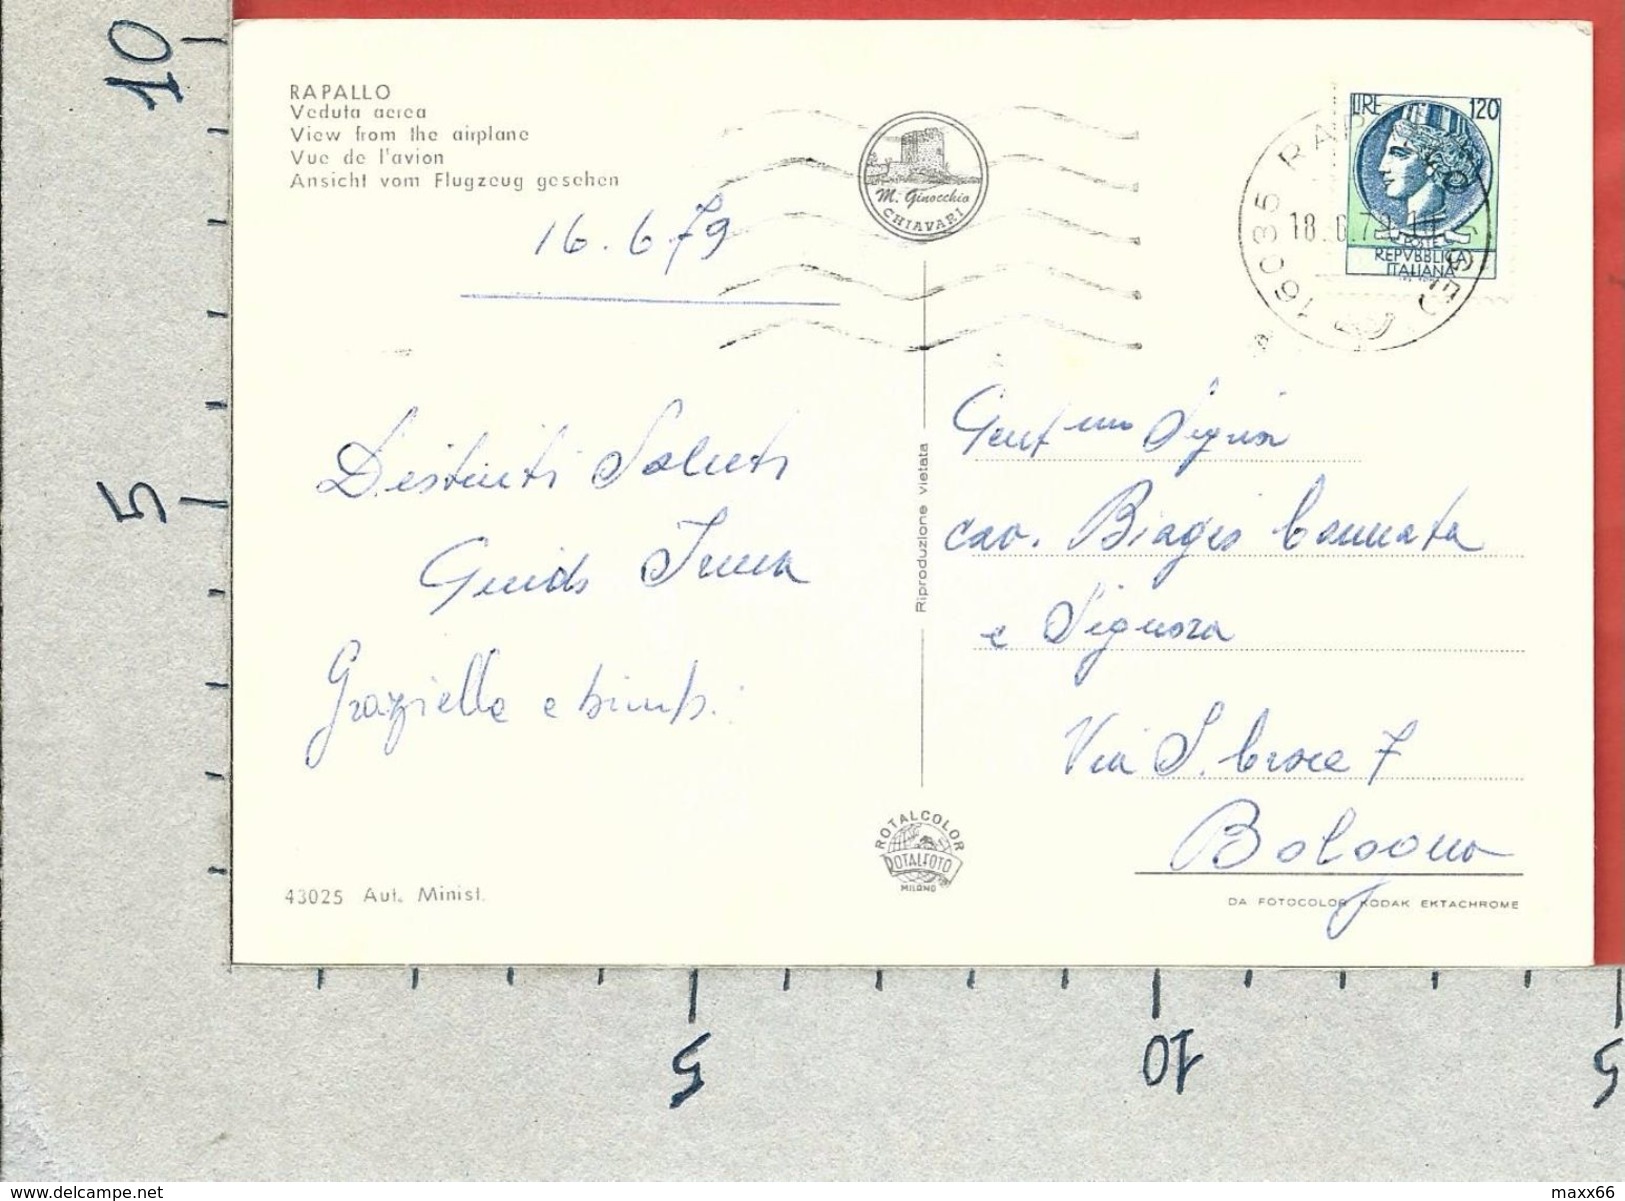 RAPALLO
Veduta aerea
View from the airplane
Vue de l'avion
Ansicht vom Flugzeug gesehen
16.6.79
M. Ginocchio
CHIAVARI
LIRE 120
POSTE
REPVBBLICA
ITALIANA
16035 RAPALLO
18.6.79
Distinti Saluti
Guido Irma
Graziella e bimbi.
Riproduzione vietata
Gent.mo Signor
cav. Biagio Cannata
e Signora
Via S. Croce 7
Bologna
ROTALCOLOR
ROTALFOTO
MILANO
43025 Aut. Minist.
DA FOTOCOLOR KODAK EKTACHROME
10
5
5
10
5
www.delcampe.net
maxx66